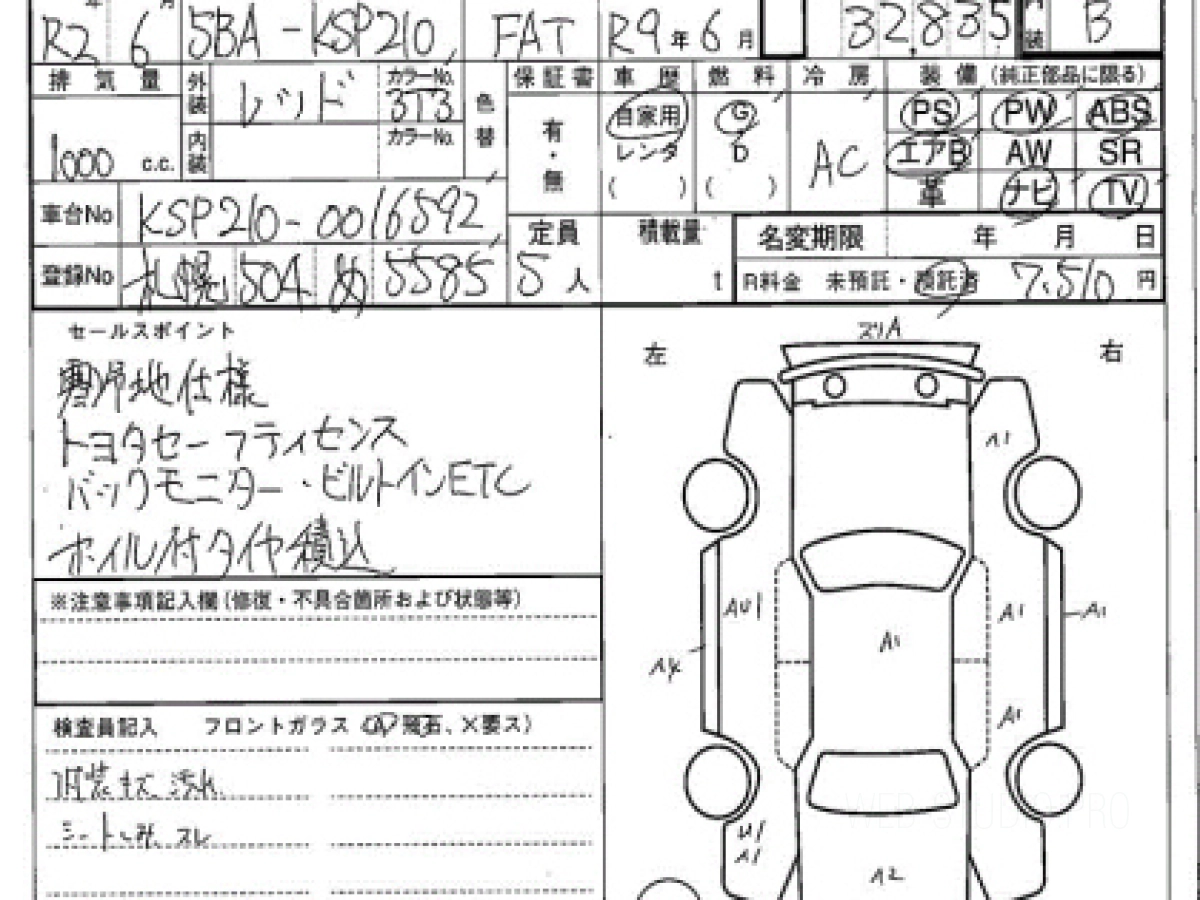 R2 6 5BA-KSP210 FAT R9年6月 32,835 装 B
排気量 外装 レッド カラーNo. 3T3 色替 保証書 車歴 燃料 冷房 装備(純正部品に限る)
1000 c.c. 内装 カラーNo. 有・無 自家用 レンタ ( ) G D ( ) AC
PS PW ABS
エアB AW SR
革 ナビ TV
車台No KSP210-0016592
定員 積載量 名変期限 年 月 日
登録No 札幌 504 め 5585 5人 t R料金 未預託・預託済 7,510円
セールスポイント
寒冷地仕様
トヨタセーフティセンス
バックモニター・ビルトインETC
ホイル付タイヤ積込
※注意事項記入欄(修復・不具合箇所および状態等)
検査員記入 フロントガラス (A 飛石、X要ス)
内装キズ 汚れ
シートシミ、スレ
スリA
左 右
A1
AU1 A1 A1
A1
A1
U1
A1
A2